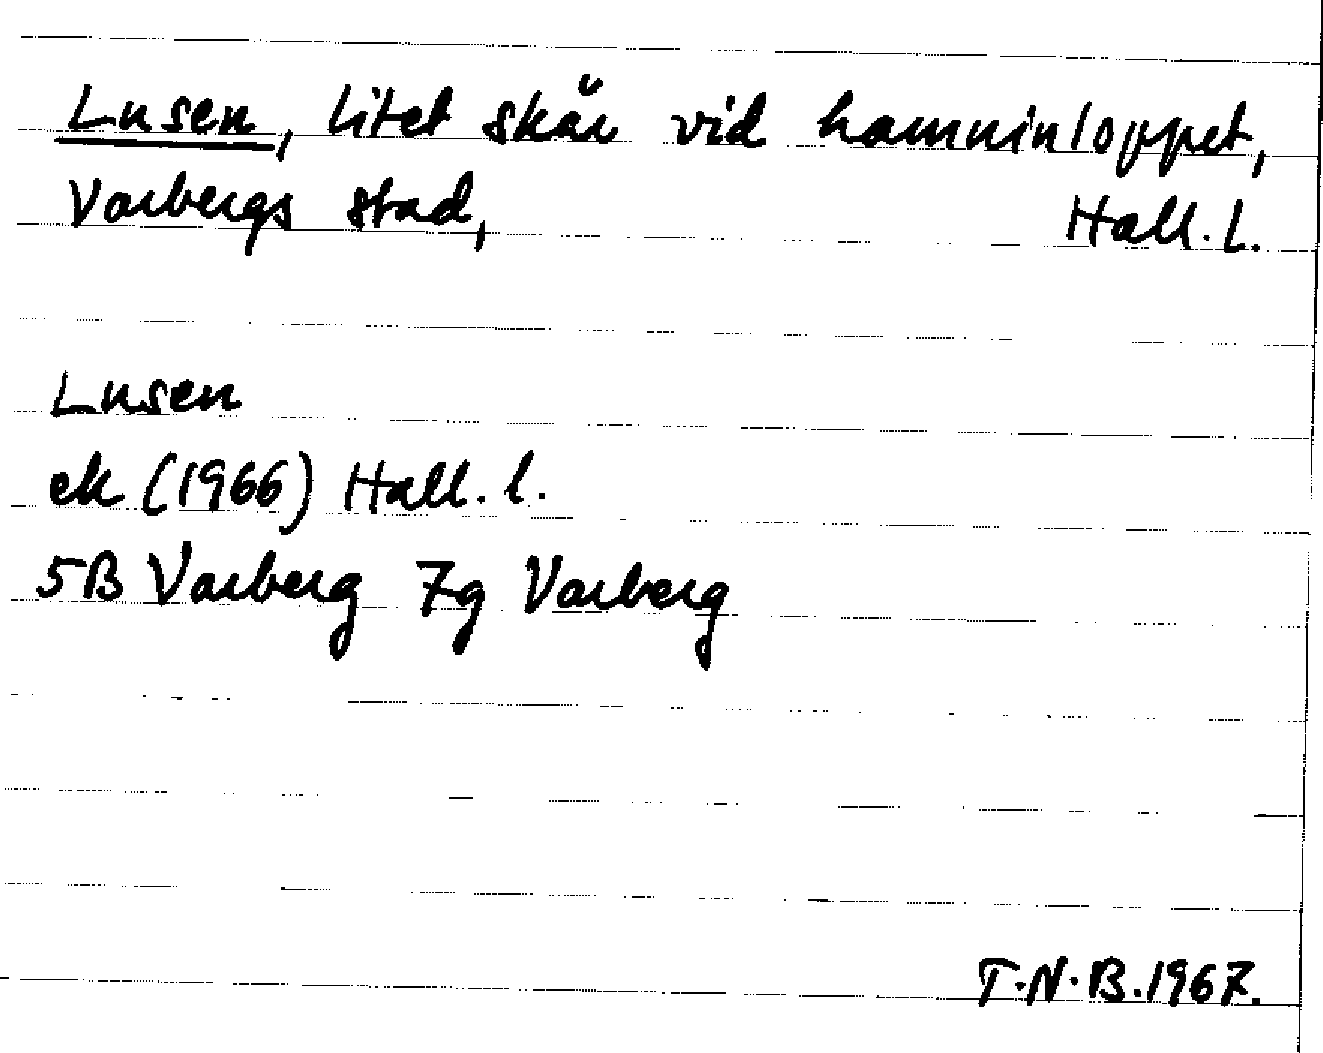 Lusen, litet skär vid hamninloppet,
Varbergs stad, Hall. l.
Lusen
ek (1966) Hall. l.
5B Varberg 7g Varberg
T.N.B.1967.